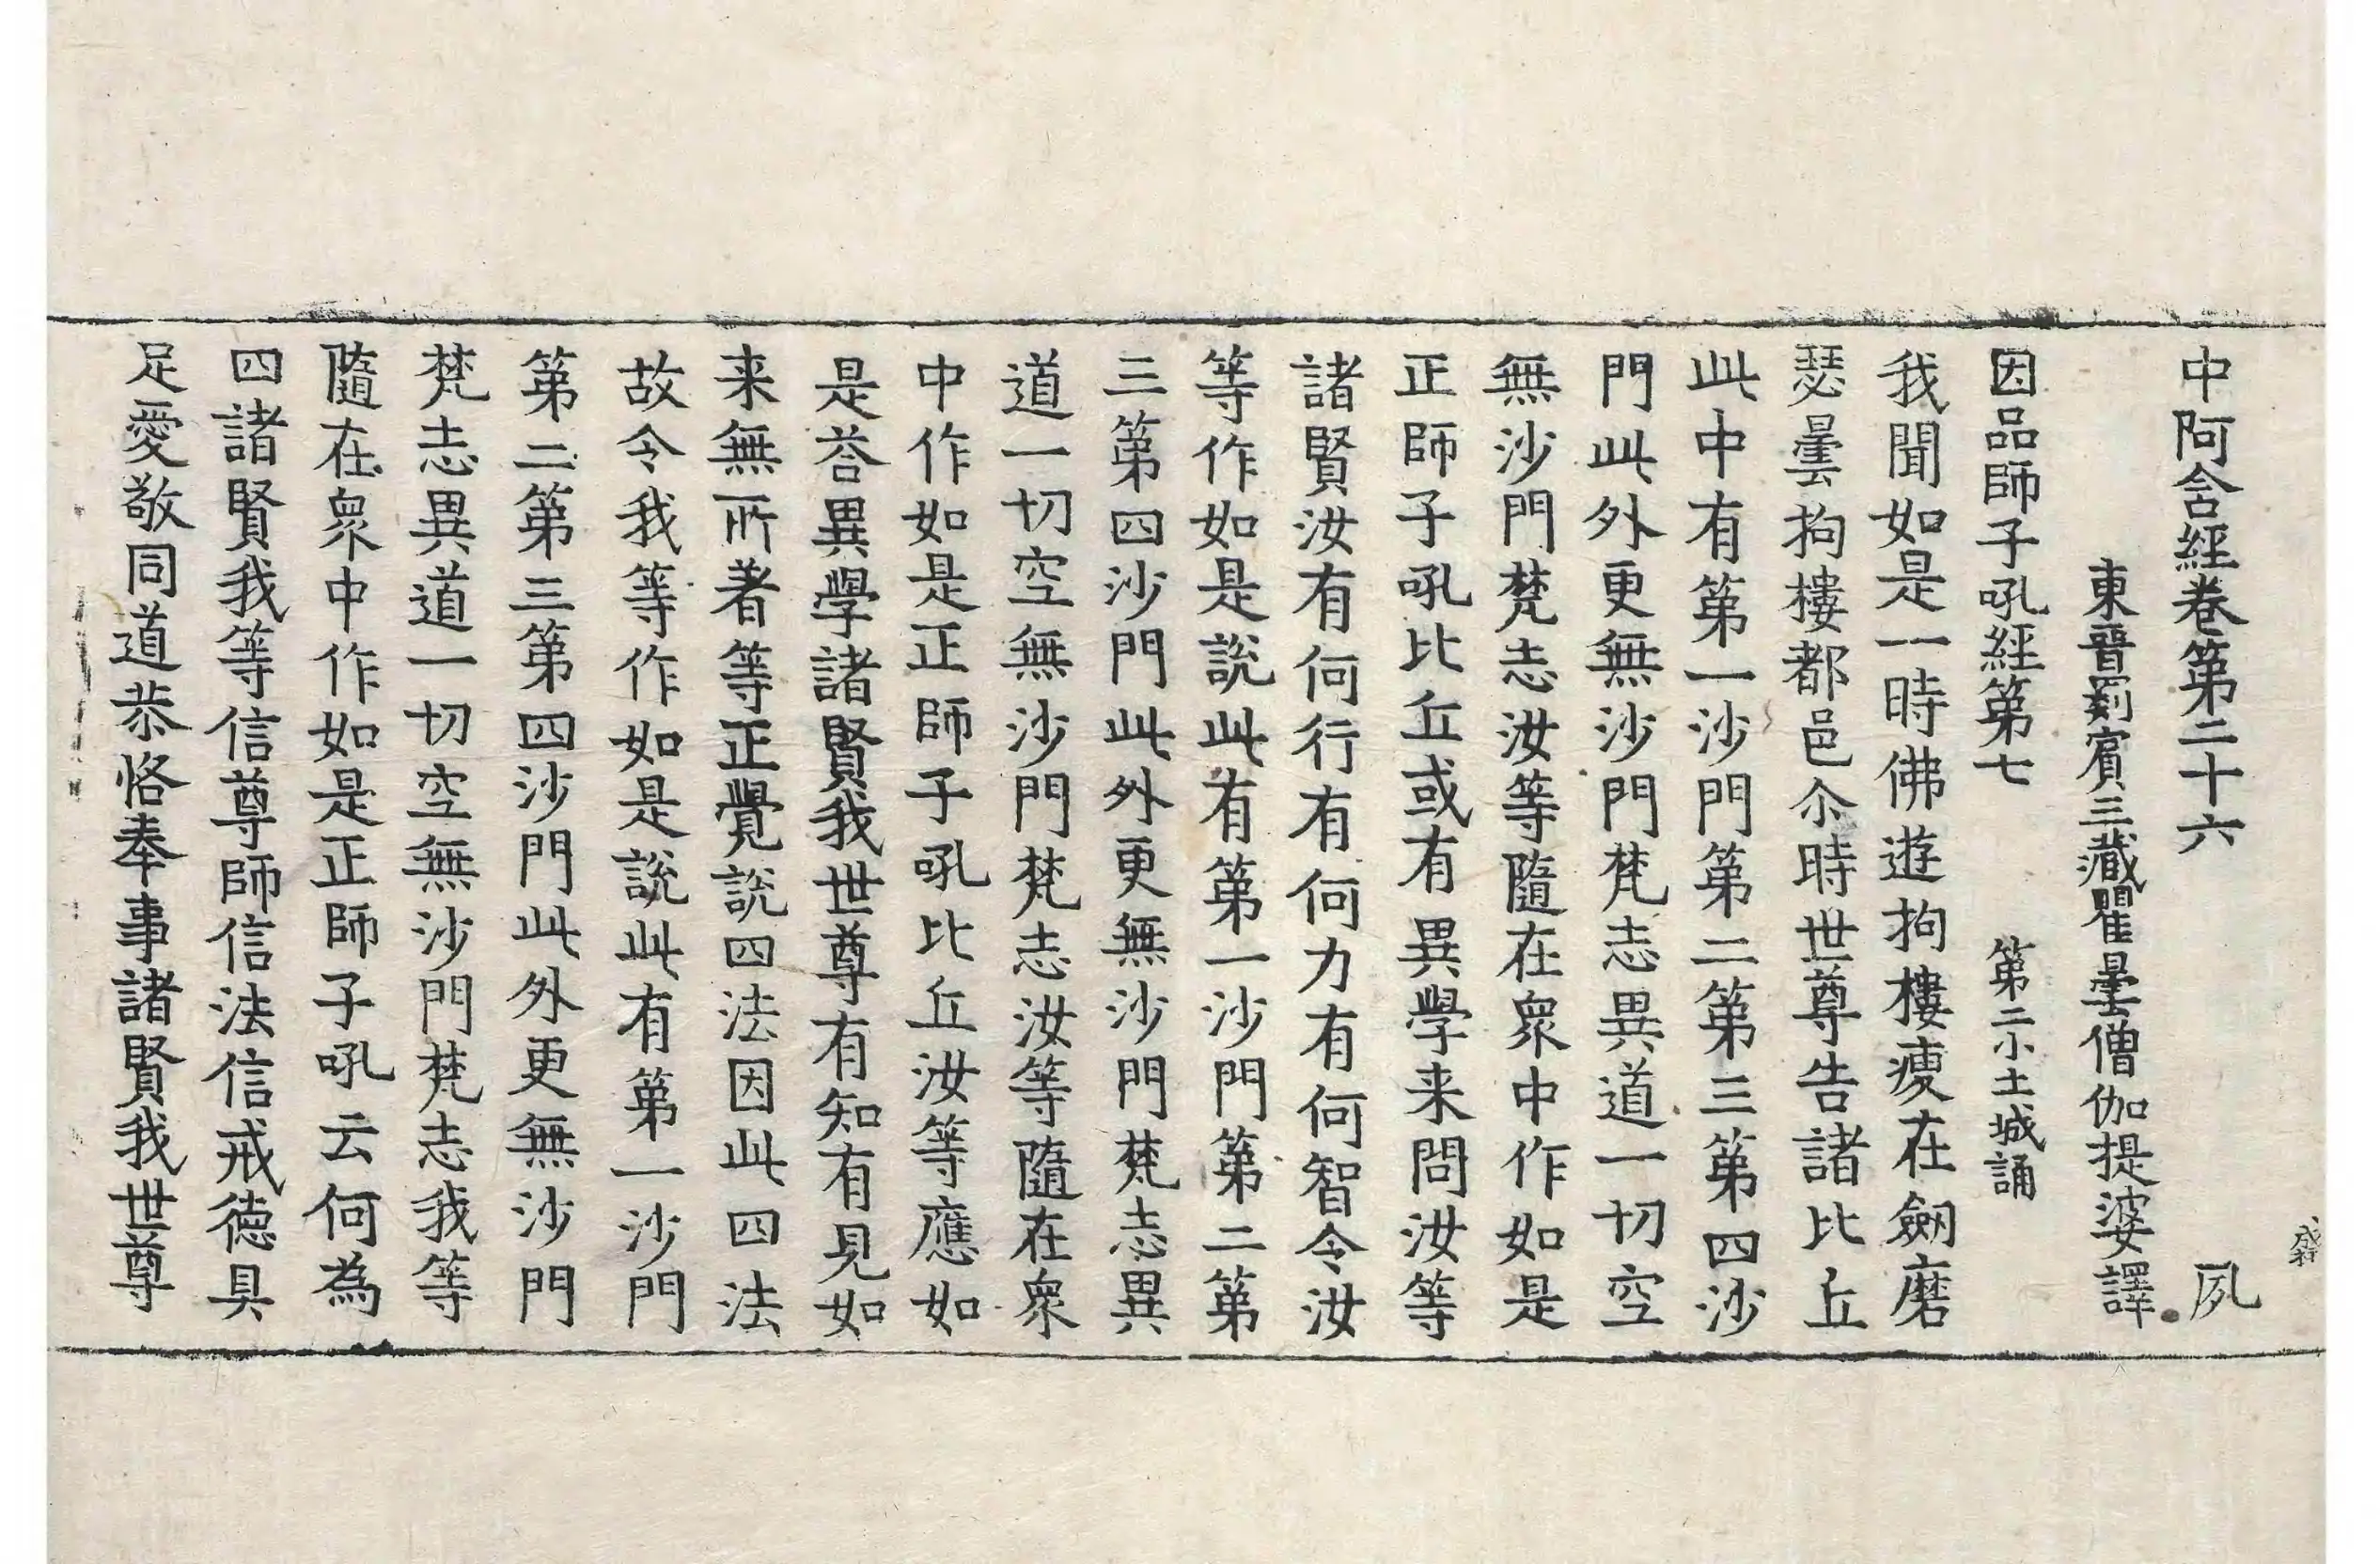 中阿含經卷第二十六 夙
東晉罽賓三藏瞿曇僧伽提婆譯
因品師子吼經第七 第二小土城誦
我聞如是一時佛遊拘樓瘦在劒磨
瑟曇拘樓都邑尒時世尊告諸比丘
此中有第一沙門第二第三第四沙
門此外更無沙門梵志異道一切空
無沙門梵志汝等隨在衆中作如是
正師子吼比丘或有異學来問汝等
諸賢汝有何行有何力有何智令汝
等作如是說此有第一沙門第二第
三第四沙門此外更無沙門梵志異
道一切空無沙門梵志汝等隨在衆
中作如是正師子吼比丘汝等應如
是荅異學諸賢我世尊有知有見如
来無所著等正覺說四法因此四法
故令我等作如是說此有第一沙門
第二第三第四沙門此外更無沙門
梵志異道一切空無沙門梵志我等
隨在衆中作如是正師子吼云何為
四諸賢我等信尊師信法信戒德具
足愛敬同道恭恪奉事諸賢我世尊